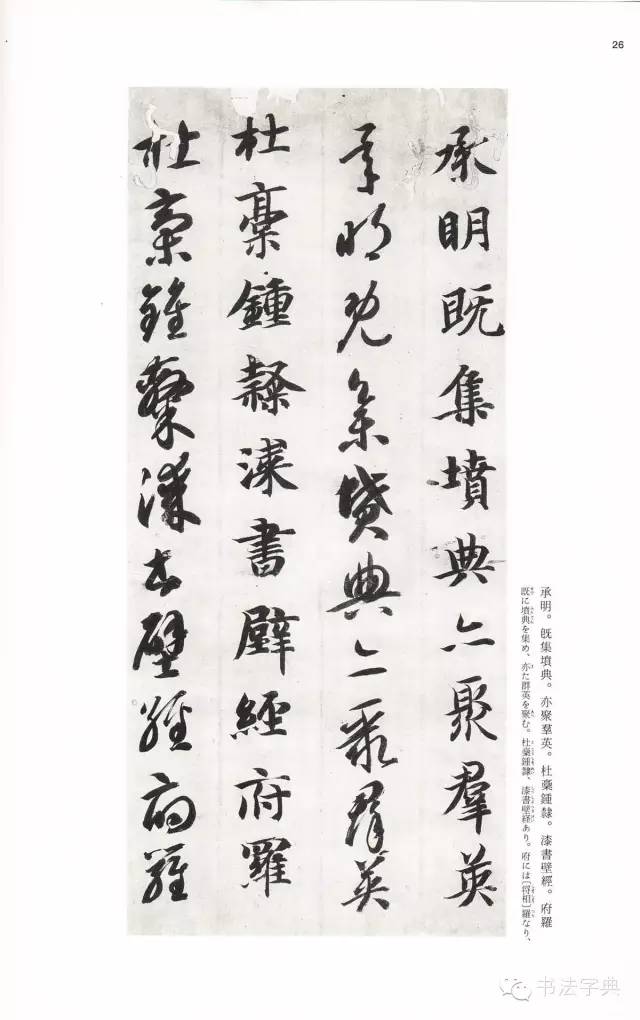 26
承明既集墳典亦聚羣英
承明既集墳典亦聚羣英
杜稾鍾隸漆書壁經府羅
杜稾鍾隸漆書壁經府羅
承明。既集墳典。亦聚羣英。杜稾鍾隸。漆書壁經。府羅
既に墳典を集め、亦た群英を聚む。杜稾鍾隸、漆書壁経あり。府には〔将相〕羅なり、
书法字典